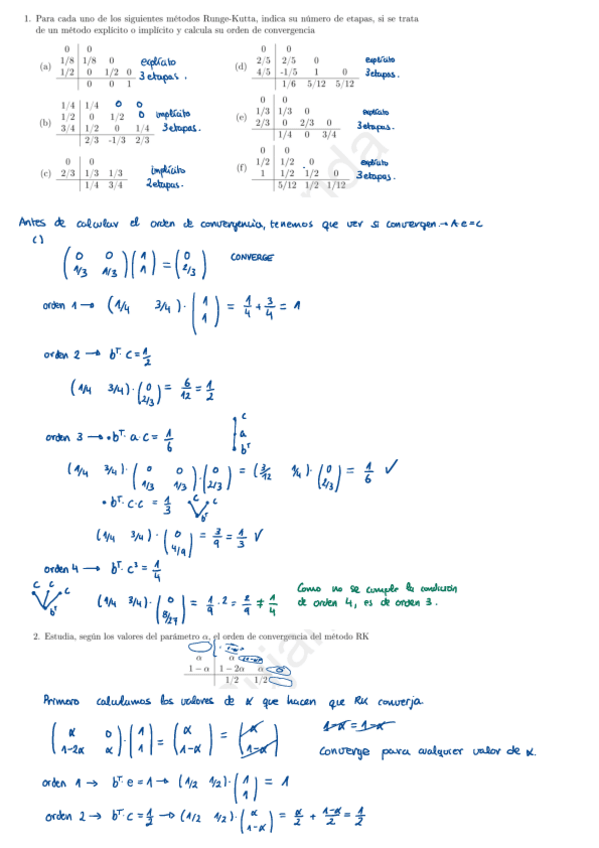 1. Para cada uno de los siguientes métodos Runge-Kutta, indica su número de etapas, si se trata
de un método explícito o implícito y calcula su orden de convergencia
(a)
0 | 0
1/8 | 1/8 0
1/2 | 0 1/2 0
0 0 1
explícito
3 etapas.
(d)
0 | 0
2/5 | 2/5 0
4/5 | -1/5 1 0
1/6 5/12 5/12
explícito
3 etapas.
(b)
1/4 | 1/4 0 0
1/2 | 0 1/2 0
3/4 | 1/2 0 1/4
2/3 -1/3 2/3
implícito
3 etapas.
(e)
0 | 0
1/3 | 1/3 0
2/3 | 0 2/3 0
1/4 0 3/4
explícito
3 etapas.
(c)
0 | 0
2/3 | 1/3 1/3
1/4 3/4
implícito
2 etapas.
(f)
0 | 0
1/2 | 1/2 0
1 | 1/2 1/2 0
5/12 1/2 1/12
explícito
3 etapas.
Antes de calcular el orden de convergencia, tenemos que ver si convergen → A e = c
c)
(0 0; 1/3 1/3) (1; 1) = (0; 2/3) CONVERGE
orden 1 → (1/4 3/4) · (1; 1) = 1/4 + 3/4 = 1
orden 2 → bᵀ · c = 1/2
(1/4 3/4) · (0; 2/3) = 6/12 = 1/2
orden 3 → • bᵀ · a · c = 1/6 c a bᵀ
(1/4 3/4) · (0 0; 1/3 1/3) · (0; 2/3) = (3/12 1/4) · (0; 2/3) = 1/6 ✓
• bᵀ · c · c = 1/3 c c bᵀ
(1/4 3/4) · (0; 4/9) = 3/9 = 1/3 ✓
orden 4 → bᵀ · c³ = 1/4
c c c bᵀ (1/4 3/4) · (0; 8/27) = 1/9 · 2 = 2/9 ≠ 1/4
Como no se cumple la condición
de orden 4, es de orden 3.
2. Estudia, según los valores del parámetro α, el orden de convergencia del método RK
α | α
1 − α | 1 − 2α α
1/2 1/2
Primero calculamos los valores de α que hacen que RK converja
(α 0; 1-2α α) · (1; 1) = (α; 1-α) = (α; 1-α) 1-α = 1-α
Converge para cualquier valor de α.
orden 1 → bᵀ · e = 1 → (1/2 1/2) · (1; 1) = 1
orden 2 → bᵀ · c = 1/2 → (1/2 1/2) · (α; 1-α) = α/2 + 1-α/2 = 1/2